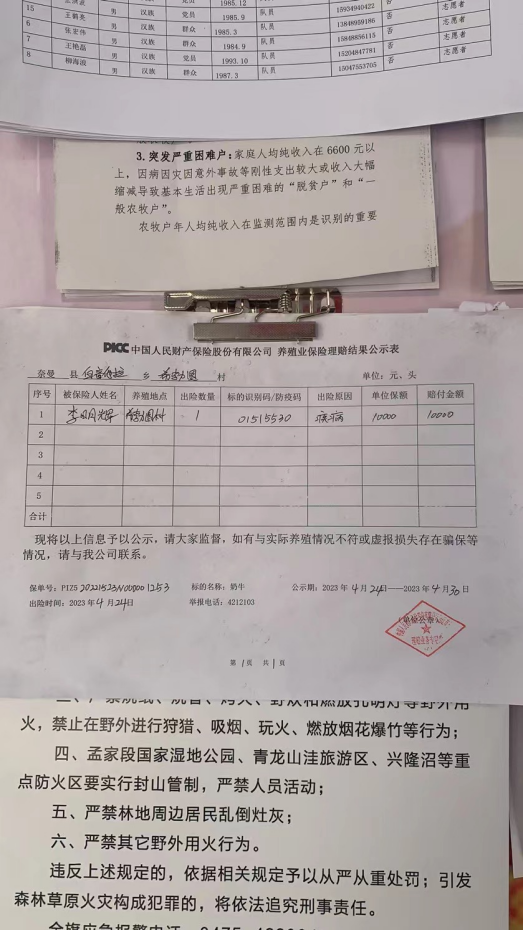 15
男 汉族 党员 1985.12 队员 15934940422 否 志愿者
6 王鹤亮 男 汉族 党员 1985.9 队员 13848959186 否
张宏伟 男 汉族 群众 1985.3 队员 15848856115 否 志愿者
7 王艳磊 男 汉族 群众 1984.9 队员 15204847781 否 志愿者
8 柳海波 男 汉族 党员 1993.10 队员 15047553705 否 志愿者
群众 1987.3
3.突发严重困难户：家庭人均纯收入在 6600 元以
上，因病因灾因意外事故等刚性支出较大或收入大幅
缩减导致基本生活出现严重困难的“脱贫户”和“一
般农牧户”。
农牧户年人均纯收入在监测范围内是识别的重要
PICC 中国人民财产保险股份有限公司 养殖业保险理赔结果公示表
奈曼 县 乡 村 单位：元、头
序号 被保险人姓名 养殖地点 出险数量 标的识别码/防疫码 出险原因 单位保额 赔付金额
1 李明辉 1 01515530 疾病 10000 10000
2
3
4
5
合计
现将以上信息予以公示，请大家监督，如有与实际养殖情况不符或虚报损失存在骗保等
情况，请与我公司联系。
保单号：PIZ5 20221523N00000 1253 标的名称：奶牛 公示期：2023 年 4 月 24日——2023 年 4 月 30 日
出险时间：2023 年 4 月 24日 举报电话：4212103 （单位公章）
第 1 页 共 1 页
火，禁止在野外进行狩猎、吸烟、玩火、燃放烟花爆竹等行为；
四、孟家段国家湿地公园、青龙山洼旅游区、兴隆沼等重
点防火区要实行封山管制，严禁人员活动；
五、严禁林地周边居民乱倒灶灰；
六、严禁其它野外用火行为。
违反上述规定的，依据相关规定予以从严从重处罚；引发
森林草原火灾构成犯罪的，将依法追究刑事责任。